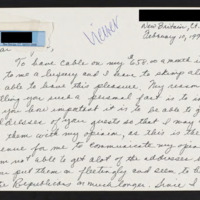 Viewer
New Britain, Ct.
February 10, 199
To have cable on my $658. a month is
to me a luxury and I have to skimp all
able to have this pleasure. My reason
telling you such a personal fact is to im
you how important it is to be able to ge
addresses of your guests so that I may
them with my opinion, as this is the
avenue for me to communicate my opin
am not able to get alot of the addresses a
you put them on fleetingly and seem to b
the Republicans on much longer. Since I